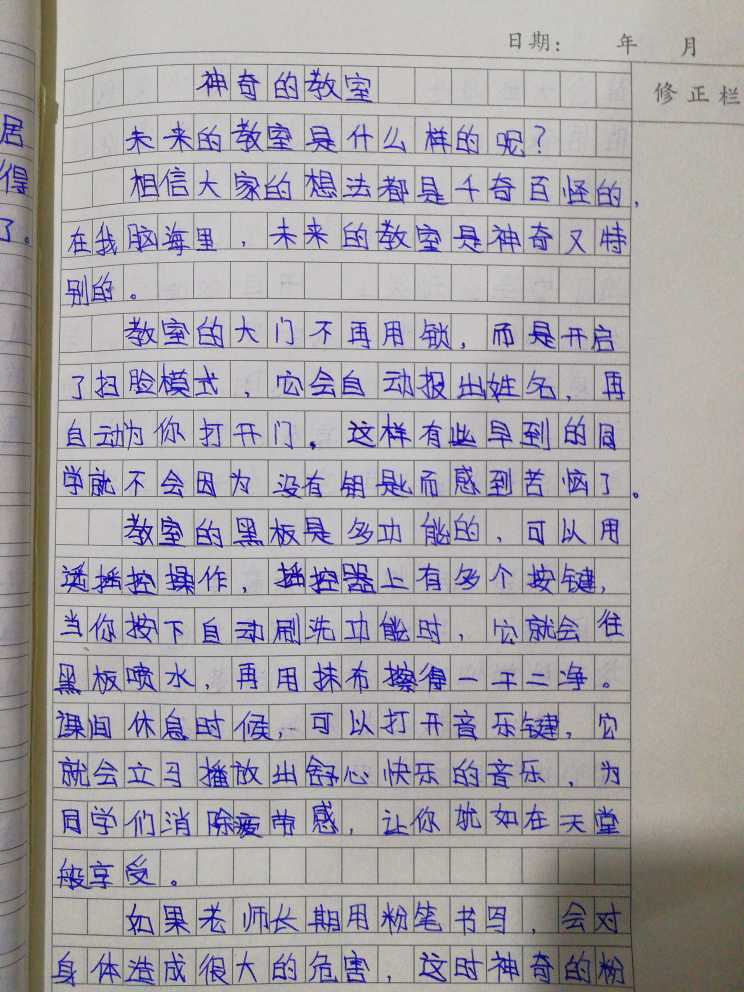 日期： 年 月
修正栏
居
得
了。
神奇的教室
未来的教室是什么样的呢？
相信大家的想法都是千奇百怪的，
在我脑海里，未来的教室是神奇又特
别的。
教室的大门不再用锁，而是开启
了扫脸模式，它会自动报出姓名，再
自动为你打开门。这样有些早到的同
学就不会因为没有钥匙而感到苦恼了。
教室的黑板是多功能的，可以用
遥控操作，遥控器上有多个按键，
当你按下自动刷洗功能时，它就会往
黑板喷水，再用抹布擦得一干二净。
课间休息时候，可以打开音乐键，它
就会立马播放出舒心快乐的音乐，为
同学们消除疲带感，让你就如在天堂
般享受。
如果老师长期用粉笔书写，会对
身体造成很大的危害，这时神奇的粉